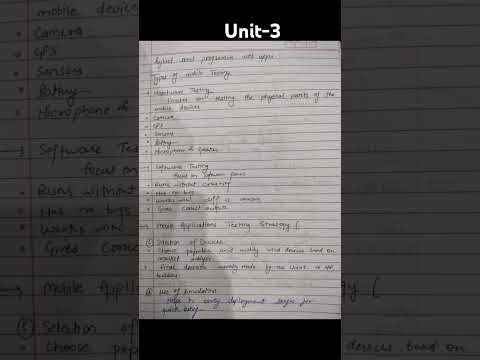 Unit-3
hybrid and progressive web apps
Types of mobile Testing
Hardware Testing
focuses on testing the physical parts of the
mobile devices
Camera
GPS
Sensors
Battery
Microphone & speaker
Software Testing
focus on software parts
Runs without crashing
Has no bugs
Works well
Gives correct output
→ Mobile Applications Testing Strategy (
Selection of Devices
Choose popular and widely used devices based on
market analysis
Final decision mostly made by the client or app
builders
Use of Emulators
Helps in early deployment stages for
quick testing
mobile devic
Camera
GPS
Sensors
Battery
Microphone &
Software Tes
focus on
Runs without
Has no bugs
Works well
Gives Correc
→ Mobile Applic
tegy (
Selection of
Choose pop
devices based on